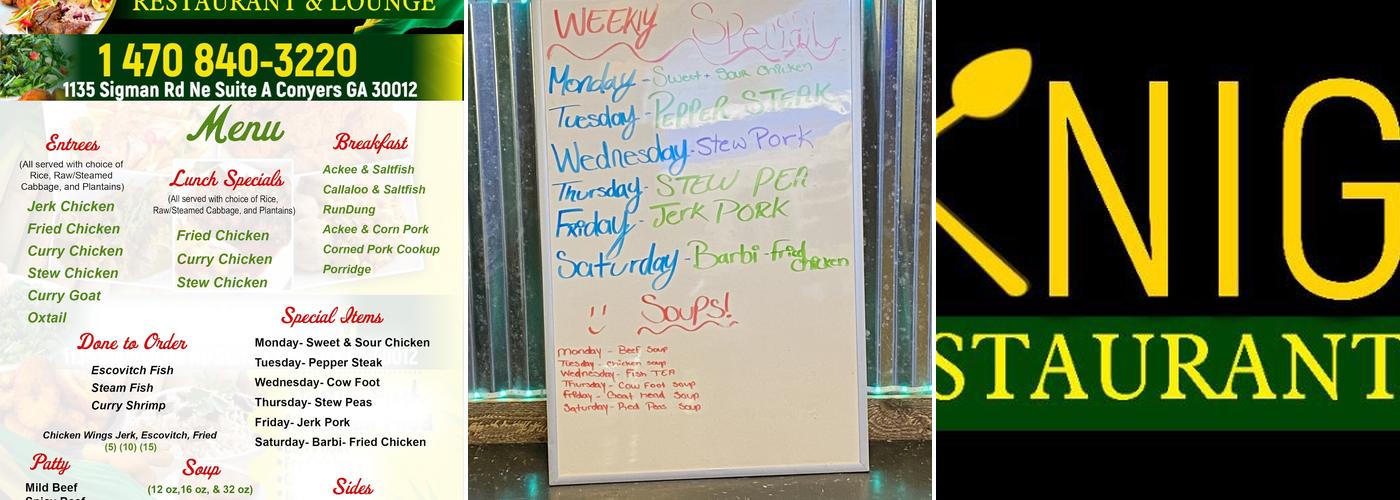 RESTAURANT & LOUNGE
1 470 840-3220
1135 Sigman Rd Ne Suite A Conyers GA 30012
Menu
Entrees
(All served with choice of
Rice, Raw/Steamed
Cabbage, and Plantains)
Jerk Chicken
Fried Chicken
Curry Chicken
Stew Chicken
Curry Goat
Oxtail
Lunch Specials
(All served with choice of Rice,
Raw/Steamed Cabbage, and Plantains)
Fried Chicken
Curry Chicken
Stew Chicken
Breakfast
Ackee & Saltfish
Callaloo & Saltfish
RunDung
Ackee & Corn Pork
Corned Pork Cookup
Porridge
Done to Order
Escovitch Fish
Steam Fish
Curry Shrimp
Chicken Wings Jerk, Escovitch, Fried
(5) (10) (15)
Special Items
Monday- Sweet & Sour Chicken
Tuesday- Pepper Steak
Wednesday- Cow Foot
Thursday- Stew Peas
Friday- Jerk Pork
Saturday- Barbi- Fried Chicken
Patty
Mild Beef
Spicy Beef
Soup
(12 oz,16 oz, & 32 oz)
Sides
WEEKLY Special
Monday - Sweet + Sour Chicken
Tuesday - PEPPER STEAK
Wednesday - Stew Pork
Thursday - STEW PEA
Friday - Jerk PORK
Saturday - Barbi - fried chicken
Soups!
Monday - Beef Soup
Tuesday - chicken soup
Wednesday - Fish TEA
Thursday - Cow Foot Soup
Friday - Goat Head Soup
Saturday - Red Peas Soup
KNIG
STAURANT